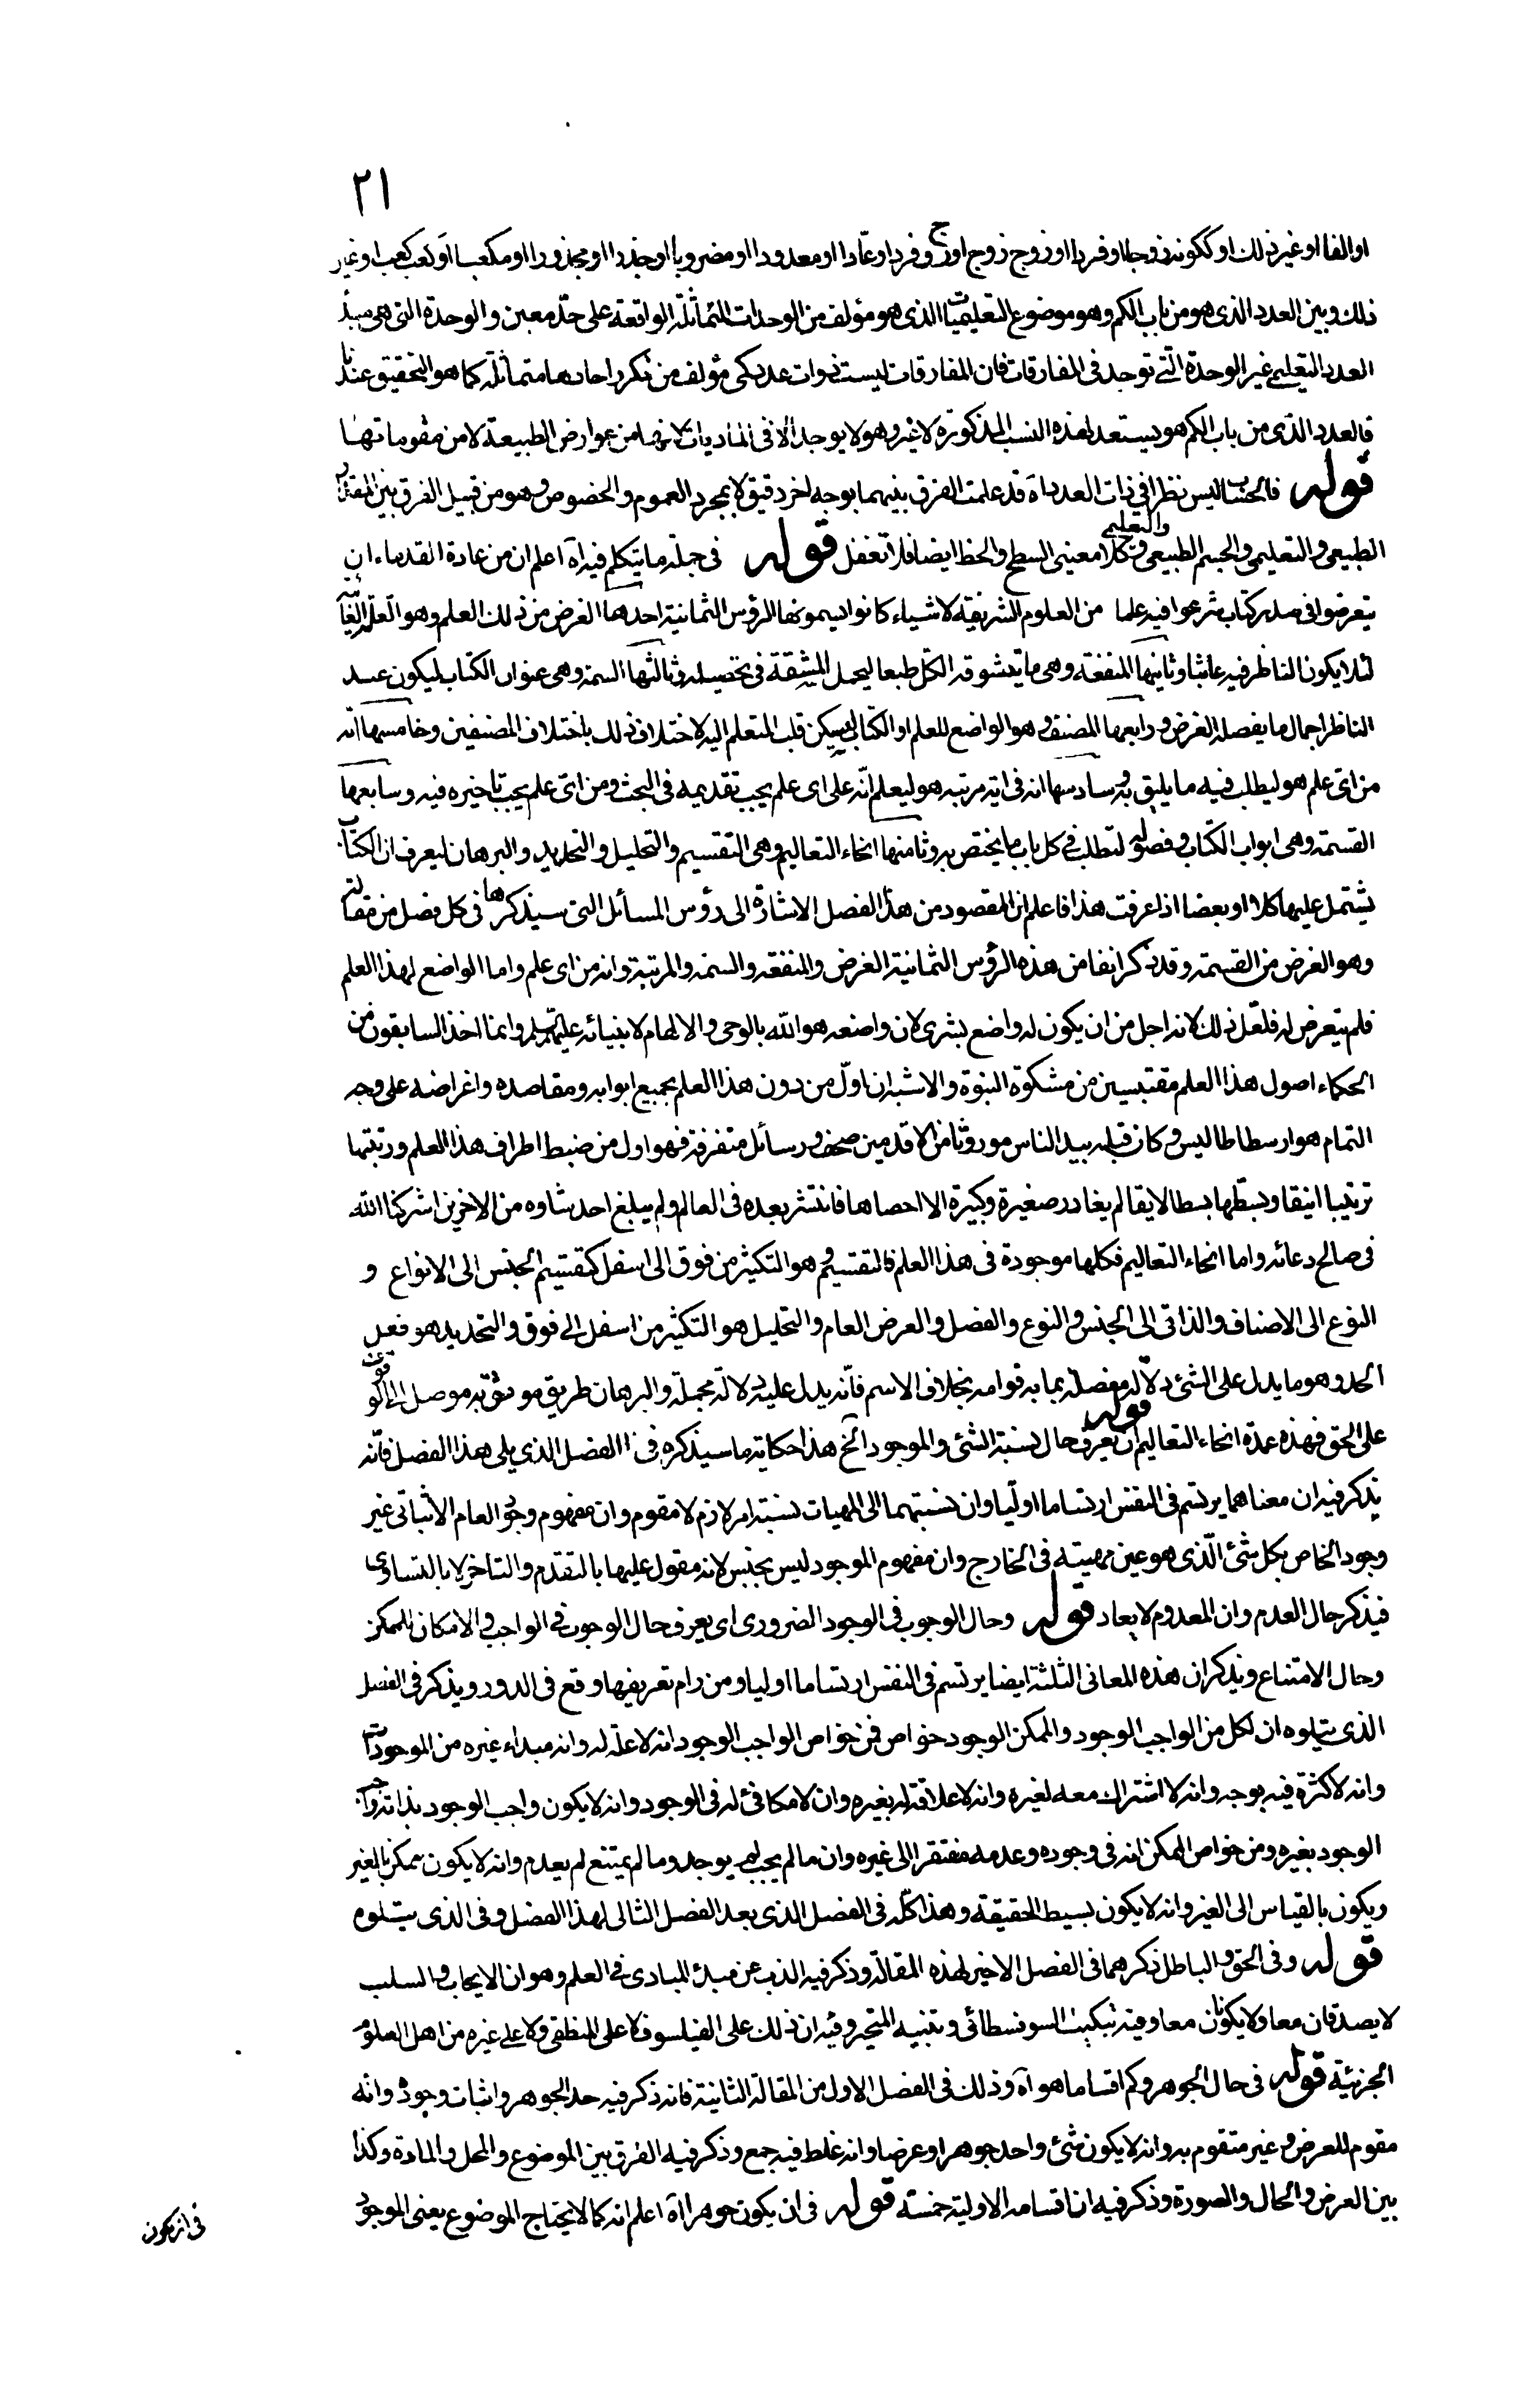 ٢١
او الفا او غير ذلك او ككونه زوجا او فردا او زوج زوج او زوج وفرد او عادّا او معدودا او مضروبا او جذرا او مجذورا او مكعبا او كعب كعب او غير
ذلك وبين العدد الذى هو من باب الكم وهو موضوع التعليميات الذى هو مؤلف من الوحدات المتماثلة الواقعة على حدّ معين والوحدة التى هى مبدأ
العدد التعليمى غير الوحدة الّتى توجد فى المفارقات فان المفارقات ليست ذوات عدد كمى مؤلف من تكرر احاد هامتماثلة كما هو التحقيق عندنا
فالعدد الذى من باب الكم هو يستعد لهذه النسب المذكورة لا غير وهو لا يوجد الا فى الماديات لانها من عوارض الطبيعة لا من مقوماتها
قوله فالحساب ليس نظرا فى ذات العدد اه قد علمت الفرق بينهما بوجه اخر دقيق لا بمجرد العموم والخصوص وهو من قبيل الفرق بين المقدار
الطبيعى والتعليمى والجسم الطبيعى والتعليمى وكلا معنيى السطح والخط ايضا فلا تغفل قوله فى جملة ما يتكلم فيه اه اعلم ان من عادة القدماء ان
يتعرضوا فى صدر كتاب شرعوا فيه علما من العلوم الشريفة لاشياء كانوا يسمونها الرؤس الثمانية احدها الغرض من ذلك العلم وهو العلّة الغائية
لئلا يكون الناظر فيه عابثا وثانيها المنفعة وهى ما يتشوقه الكل طبعا ليحمل المشقة فى تحصيله وثالثها السمة وهى عنوان الكتاب ليكون عند
الناظر اجمال ما يفصله الغرض ورابعها المصنف وهو الواضع للعلم او الكتاب ليسكن قلب المتعلم اليه لاختلاف ذلك باختلاف المصنفين وخامسها انّه
من اىّ علم هو ليطلب فيه ما يليق به وسادسها انه فى اية مرتبة هو ليعلم انّه على اى علم يجب تقديمه فى البحث ومن اىّ علم يجب تاخيره فيه وسابعها
القسمة وهى ابواب الكتاب وفصوله ليطلب فى كل باب ما يختص به وثامنها انحاء التعاليم وهى التقسيم والتحليل والتحديد والبرهان ليعرف ان الكتاب
يشتمل عليها كلا او بعضا اذا عرفت هذا فاعلم ان المقصود من هذا الفصل الاشارة الى رؤس المسائل التى سيذكرها فى كل فصل من مقالته
وهو الغرض من القسمة وقد ذكر انفا من هذه الرؤس الثمانية الغرض والمنفعة والسمة والمرتبة وانه من اى علم واما الواضع لهذا العلم
فلم يتعرض له فلعلّ ذلك لانه اجل من ان يكون له واضع بشرى لان واضعه هو الله بالوحى والالهام لانبيائه عليهم السلم وانما اخذ السابقون من
الحكماء اصول هذا العلم مقتبسين من مشكوة النبوة والاشبه ان اوّل من دون هذا العلم بجميع ابوابه ومقاصده واغراضه على وجه
التمام هو ارسطاطاليس وكان قبله بيد الناس موروثا من الاقدمين صحف ورسائل متفرقة فهو اول من ضبط اطراف هذا العلم ورتبتها
ترتيبا انيقا وبسطها بسطا لايقا لم يغادر صغيرة وكبيرة الا احصاها فانتشر بعده فى العالم ولم يبلغ احد شاوه من الاخرين اشركنا الله
فى صالح دعائه واما انحاء التعاليم فكلها موجودة فى هذا العلم فالتقسيم وهو التكثير من فوق الى اسفل كتقسيم الجنس الى الانواع و
النوع الى الاصناف والذاتى الى الجنس والنوع والفصل والعرض العام والتحليل هو التكثير من اسفل الى فوق والتحديد هو فعل
الحد وهو ما يدل على الشئ دلالة مفصلة بما به قوامه بخلاف الاسم فانّه يدل عليه دلالة مجملة والبرهان طريق موثوق به موصل الى الوقوف
على الحق فهذه عمدة انحاء التعاليم قوله ان نعرف حال نسبة الشئ والموجود الخ هذا حكاية ما سيذكره فى الفصل الذى يلى هذا الفصل فانّه
يذكر فيه ان معناهما يرتسم فى النفس ارتساما اوليا وان نسبتهما الى المهيات نسبة امر لازم لا مقوم وان مفهوم وجود العام الاثباتى غير
وجود الخاص بكل شئ الّذى هو عين مهيته فى الخارج وان مفهوم الموجود ليس بجنس لانه مقول عليها بالتقدم والتاخر لا بالتساوى
فيذكر حال العدم وان المعدوم لا يعاد قوله وحال الوجوب فى الوجود الضرورى اى يعرف حال الوجوب فى الواجب والامكان للممكن
وحال الامتناع ويذكر ان هذه المعانى الثلثة ايضا يرتسم فى النفس ارتساما اوليا ومن رام تعريفها وقع فى الدور ويذكر فى الفصل
الذى يتلوه ان لكل من الواجب الوجود والممكن الوجود خواص فمن خواص الواجب الوجود انه لا علّة له وانه مبداء غيره من الموجودات
وانه لا كثرة فيه بوجه وانه لا اشتراك معه لغيره وانه لا علاقة له بغيره وان لا مكافئ له فى الوجود وانه لا يكون واجب الوجود بذاته واجب
الوجود بغيره ومن خواص الممكن انه فى وجوده وعدمه مفتقر الى غيره وان ما لم يجب لم يوجد وما لم يمتنع لم يعدم وانه لا يكون ممكن بالغير
ويكون بالقياس الى الغير وانه لا يكون بسيط الحقيقة وهذا كلّه فى الفصل الذى بعد الفصل التالى لهذا الفصل وفى الذى يتلوه
قوله وفى الحق والباطل ذكرهما فى الفصل الاخير لهذه المقالة وذكر فيه الذب عن مبدء المبادى فى العلم وهو ان الايجاب والسلب
لا يصدقان معا ولا يكذبان معا وفيه تبكيت السوفسطائى وتنبيه المتحير وفيه ان ذلك على الفيلسوف لا على المنطقى ولا على غيره من اهل العلوم
الجزئية قوله فى حال الجوهر وكم اقساما هو اه وذلك فى الفصل الاول من المقالة الثانية فانه ذكر فيه حد الجوهر واثبات وجوده وانه
مقوم للعرض وغير متقوم به وانه لا يكون شئ واحد جوهرا وعرضا وانه غلط فيه جمع وذكر فيه الفرق بين الموضوع والمحل والمادة وكذا
بين العرض والحال والصورة وذكر فيه ان اقسامه الاولية خمسة قوله فى ان يكون جوهرا اه اعلم انه كما لا يحتاج الموضوع يعنى الموجود
فى ان يكون